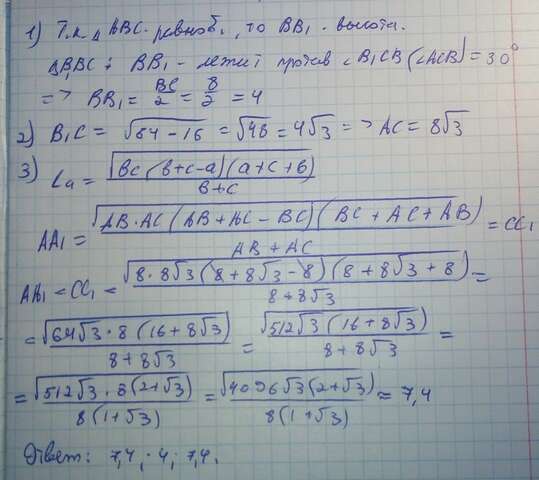 1) Т.к. △ABC - равноб., то BB₁ - высота.
△B₁BC: BB₁ - лежит против ∠B₁CB (∠ACB) = 30°
=> BB₁ = BC/2 = 8/2 = 4
2) B₁C = √(64-16) = √48 = 4√3 => AC = 8√3
3) La = √(bc(b+c-a)(a+c+b)) / b+c
AA₁ = √(AB·AC(AB+AC-BC)(BC+AC+AB)) / AB+AC = CC₁
AA₁ = CC₁ = √(8·8√3(8+8√3-8)(8+8√3+8)) / 8+8√3 =
= √(64√3·8(16+8√3)) / 8+8√3 = √(512√3(16+8√3)) / 8+8√3 =
= √(512√3·8(2+√3)) / 8(1+√3) = √(4096√3(2+√3)) / 8(1+√3) ≈ 7,4
Ответ: 7,4; 4; 7,4.